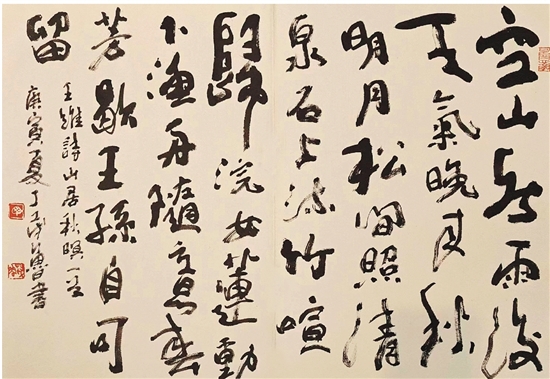 空山新雨後
天氣晚来秋
明月松間照清
泉石上流竹喧
歸浣女蓮動
下漁舟隨意春
芳歇王孫自可
留
王維詩山居秋暝一首
庚寅夏丁茂魯書